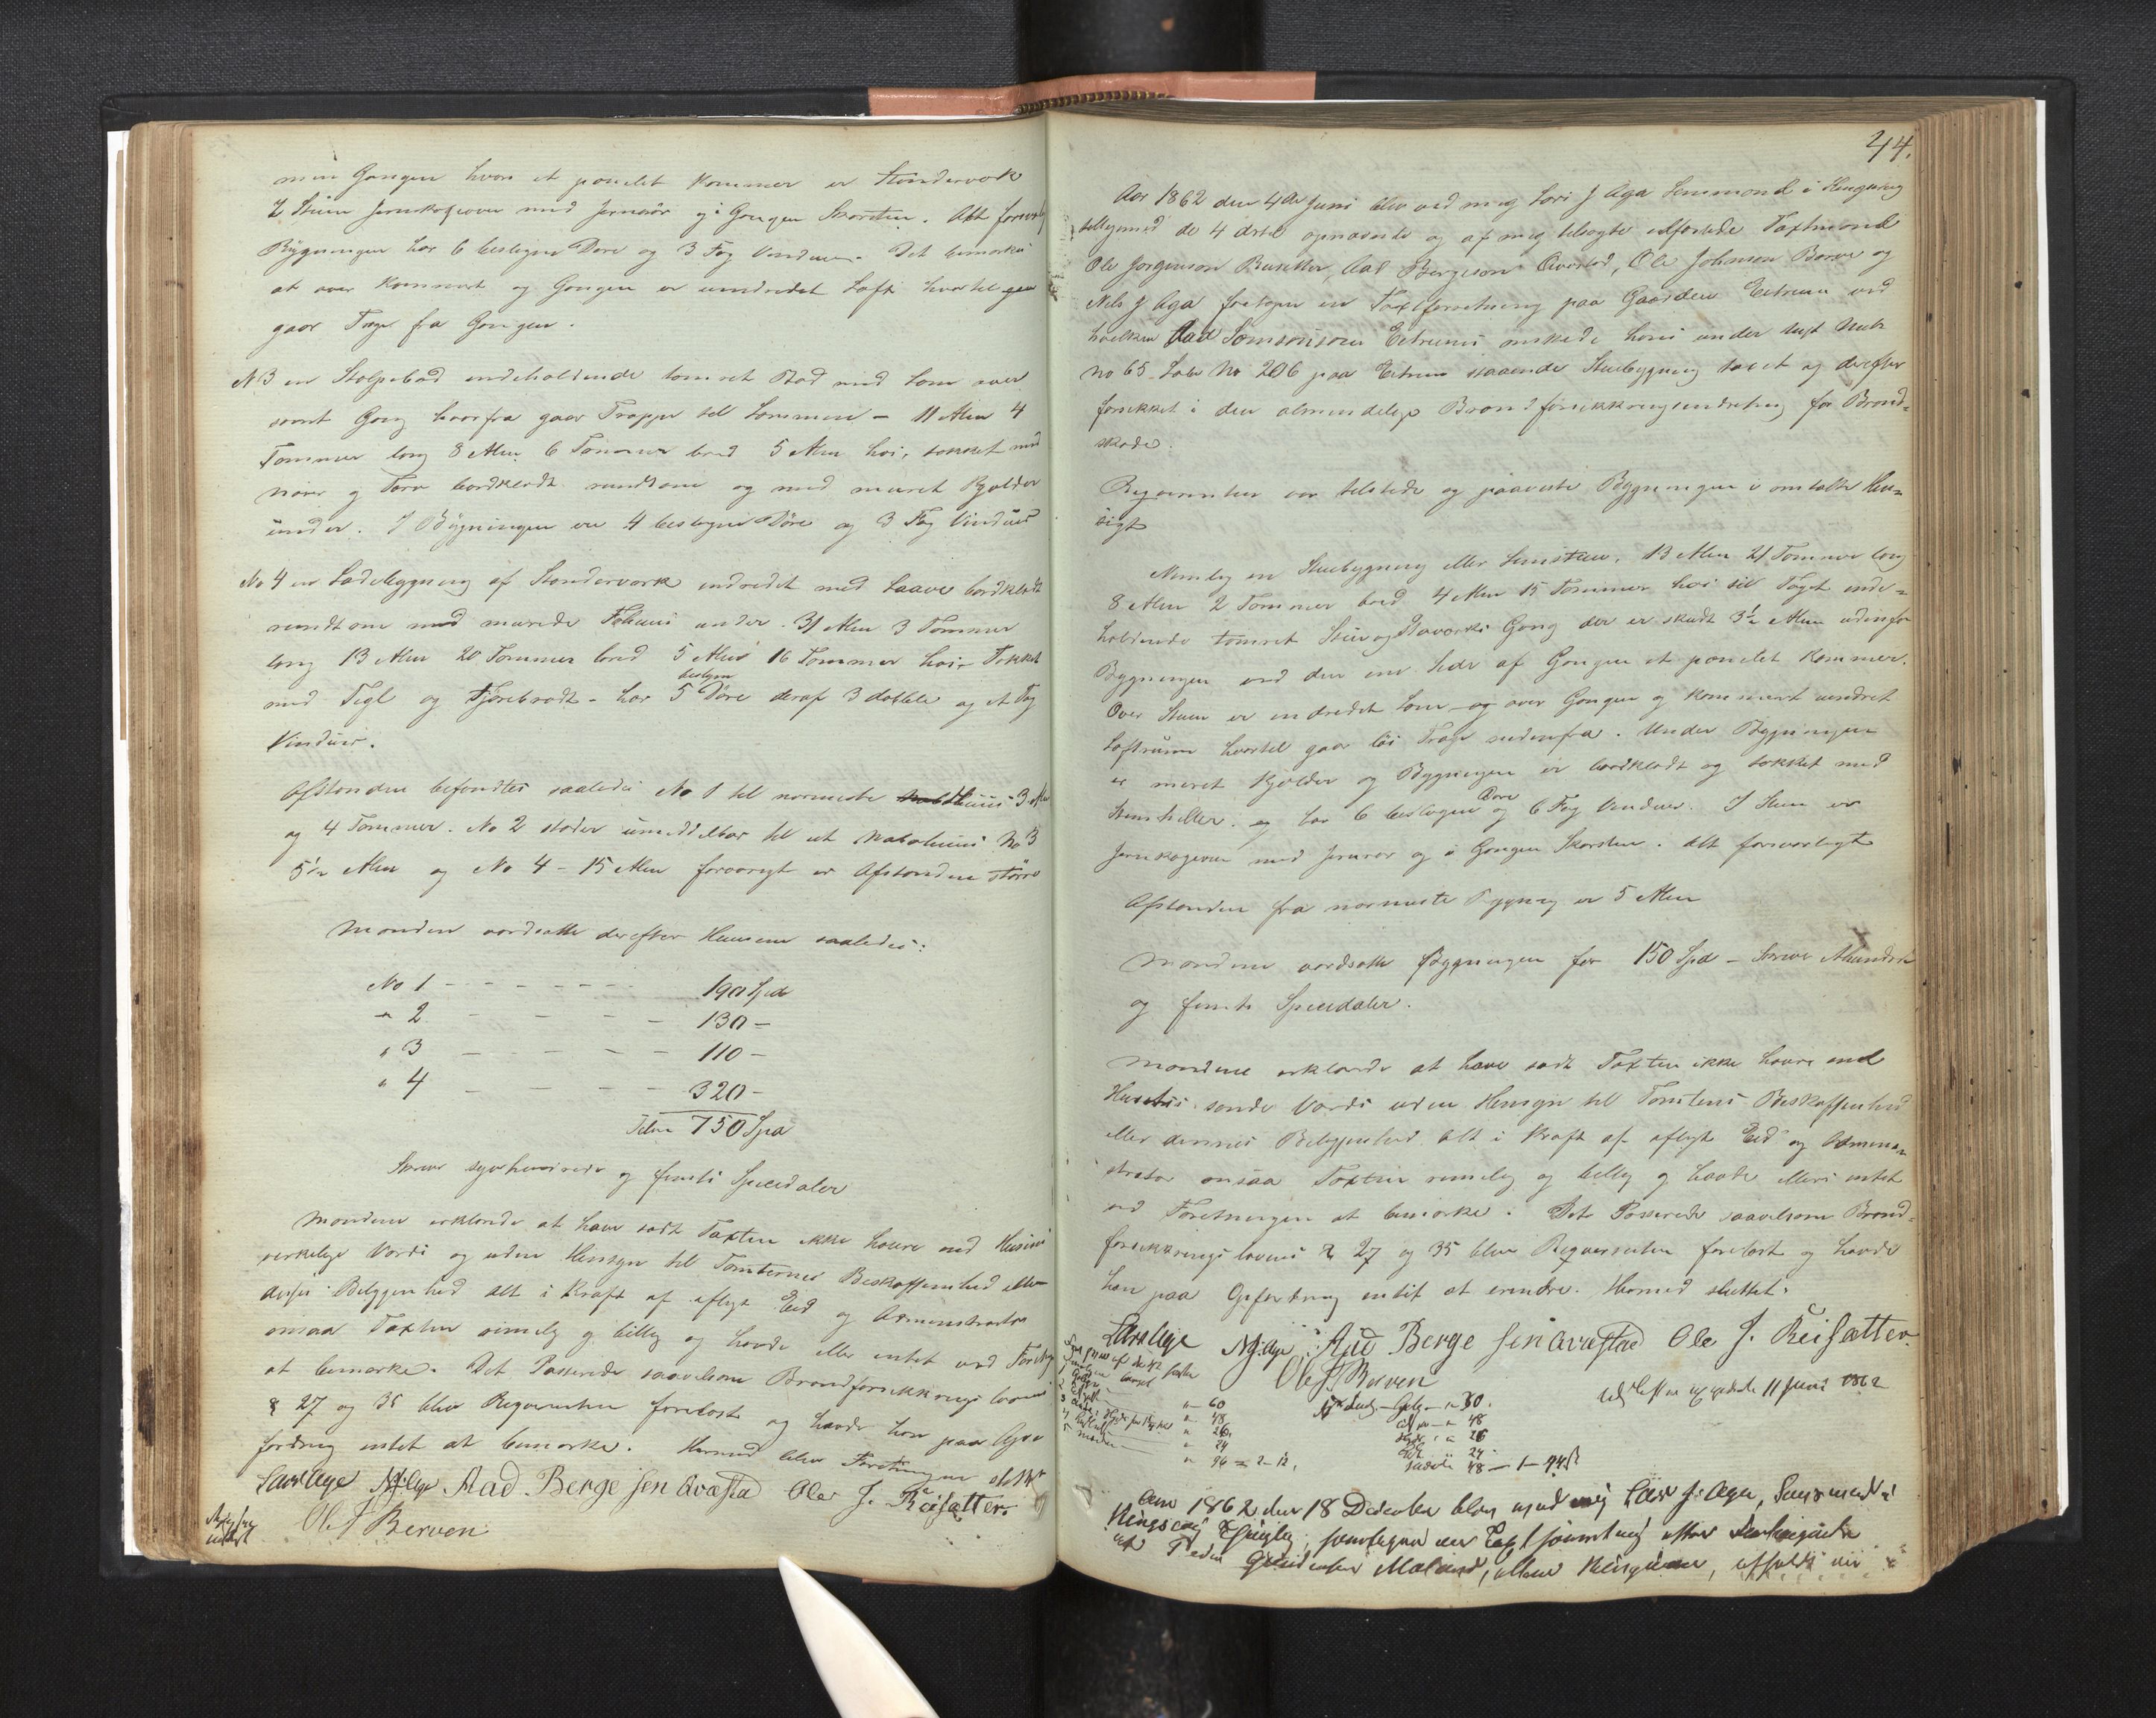 men Gangen hvori et panelet Kammer er Stenderværk
I Stuen Jernkogeovn med Jernrör og i Gangen Skorsten. Alt forsvarlig
Bygningen har 6 beslagne Döre og 3 Fag Vinduer. Det bemærkes
at over Kammeret og Gangen er indredet Loft hvortil
gaar Trap fra Gangen.
N 3 en Stolpebod indeholdende tömret Bod med Lem over
samt Gang hvorfra gaar Trappe til Lemmen - 11 Alen 4
Tommer lang 8 Alen 6 Tommer bred 5 Alen höi, tækket med
Næver og Torv bordklædt rundtom og med muret Kjelder
under. I Bygningen er 4 beslagne Döre og 3 Fag Vinduer
No 4 en Ladebygning af Stenderværk indredet med Laave bordklædt
rundtom med murede Föhuus under. 31 Alen 3 Tommer
lang 13 Alen 20 Tommer bred 5 Alen 16 Tommer höi - Tækket
med Tegl og Tjærebrædt - har 5 beslagne Döre deraf 3 dobbele og et Fag
Vinduer.
Afstanden befandtes saaledes No 1 til nærmeste Huus 3 Alen
og 4 Tommer. No 2 stöder umiddelbar til et Nabohuus No 3
5½ Alen og No 4 - 15 Alen forövrigt er Afstanden större
Mændene værdsatte derefter Husene saaledes:
No 1 - - - - - - - 190 Spd
" 2 - - - - - 130 -
" 3 - - - - - 110 -
" 4 - - - - - 320 -
Tilsm 750 Spd
Skriver syvhundrede og femti Speciedaler
Mændene erklærede at have sadt Taxten ikke höiere end Husenes
virkelige Værdi og uden Hensyn til Tomternes Beskaffenhed eller
disses Beliggenhed alt i Kraft af aflagt Eed og Administrator
ansaa Taxten rimelig og billig og havde eller intet ved Forretn
at bemærke. Det Passerede saavelsom Brandforsikkrings lovens
§ 27 og 35 blev Reqvirenten forelæst og havde han paa Opfo
fordring intet at bemærke. Hermed blev Forretningen sluttet
Lars Aga N J Aga Aad Bergesen Qvæstad Ole J. Reisætter.
Ole J Berven
44.
Aar 1862 den 4de Juni blev ved mig Lars J Aga Lensmand i Kingservig
tilligemed de 4 dertil opnævnte og af mig tilsagte edfæstede Taxtmænd
Ole Jörgenson Reisetter, Aad Bergeson Qvæstad, Ole Johnson Berve og
Nils J Aga foretagen en Taxtforretning paa Gaarden Eitrem ved
hvilken Aad Samsonsens Eitrems önskede hans under nyt Matr
No 65 Löbe No 206 paa Eitrem staaende Stuebygning taxet og derefter
forsikkret i den almindelige Brandforsikkringsindretning for Brand=
skade.
Reqvirenten var tilstede og paaviste Bygningen i omtalte Hen=
sigt
Nemlig en Stuebygning eller Lemstue, 13 Alen 21 Tommer lang
8 Alen 2 Tommer bred 4 Alen 15 Tommer höi til Taget inde=
holdende tömret Stue og Stavværks Gang der er skudt 3½ Alen udenfor
Bygningen ved den ene Side af Gangen et panelet Kammer.
Over Stuen er indredet Lem - og over Gangen og Kammeret indret
Loftrum hvortil gaar löi Trap indenfra. Under Bygningen
er muret Kjelder og Bygningen er bordklædt og tækket med
Steenheller. og har 6 beslagne Döre og 6 Fag Vinduer. I Stuen er
Jernkogeovn med Jernrör og i Gangen Skorsten. Alt forsvarligt
Afstanden fra nærmeste Bygning er 5 Alen
Mændene værdsatte Bygningen for 150 Spd - Skriver Ethundrede
og femti Speciedaler.
Mændene erklærede at have sadt Taxten ikke höiere end
Husets sande Værdi uden Hensyn til Tomtens Beskaffenhed
eller dennes Beliggenhed. Alt i Kraft af aflagt Eed og Admini=
strator ansaa Taxten rimelig og billig og havde ellers intet
ved Forretningen at bemærke. Det Passerede saavelsom Brand=
forsikkrings lovens § 27 og 35 blev Reqvirenten forelæst og havde
han paa Opfordring intet at erindre. Hermed sluttet.
Lars Aga N J Aga Aad Bergesen Qvæstad Ole J. Reisætter.
Ole J Berven
" 60
" 48
" 26
" 24
" 96 = 2 - 12.
" 30.
" 48
" 26
24
48 - 1 - 44 ß
11 Juni 1862
Aar 1862 den 18 December blev ved mig Lars J. Aga, Lensmand i
Kingservig Thinglag, foretagen en Taxtforretning efter Forlangende
af Peder